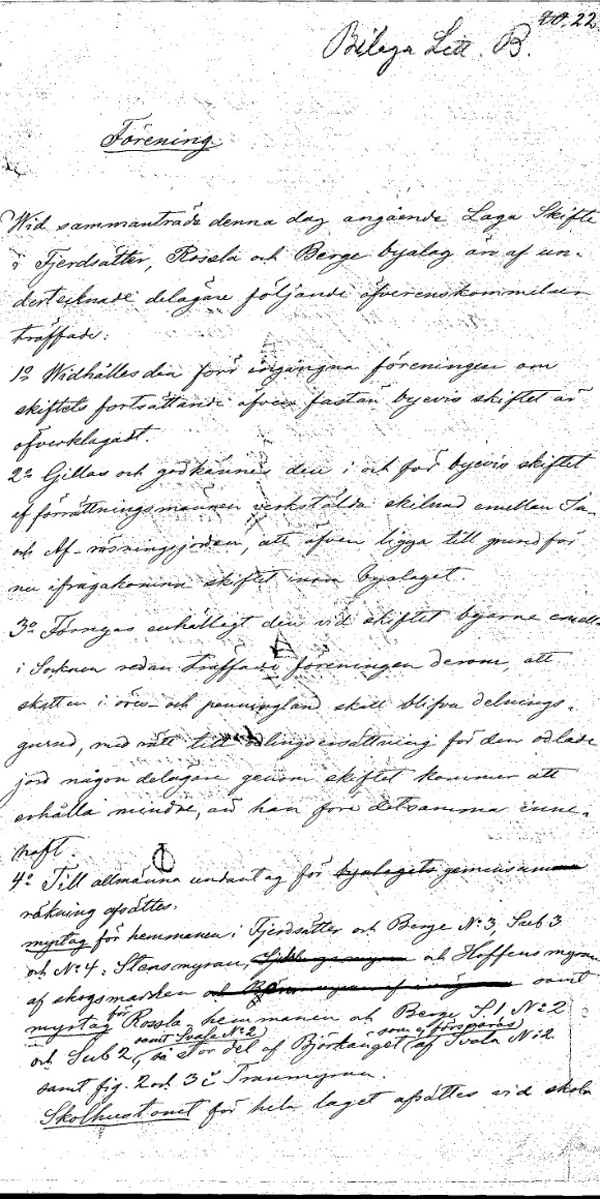 22
Bilaga Litt. B.
Förening
Wid sammanträde denna dag angående Laga Skifte
i Fjerdsätter, Rossla och Berge byalag är af un-
dertecknade delägare följande öfverenskommelser
träffade:
1o Widhålles den förr ingångna föreningen om
skiftets fortsättande äfven fastän byevis skiftet är
öfverklagadt.
2o Gillas och godkännes den i och för byevis skiftet
af förrättningsmannen verkstälda skilnad emellan In-
och Af-rösningsjorden, att äfven ligga till grund för
nu ifrågakomna skiftet inom byalaget.
3o Förnyas enhälligt den vid skiftet byarne emell-
i Socknen redan träffade föreningen derom, att
skatten i öres- och penningland skall blifva delnings-
grund, med rätt till odlingsersättning för den odlade
jord någon delägare genom skiftet kommer att
erhålla mindre, än han före detsamma inne-
haft.
4o Till allmänna undantag för byalagets gemensamma
räkning afsättes:
myrtag för hemmanen i Fjerdsätter och Berge No 3, Sub 3
och No 4: Stensmyran, och Hoffensmyran
af skogsmarken samt
myrtag för Rossla hemmanen och Berge S. 1, No 2
samt Svala No 2) som ej försparas)
och Sub 2, så stor del af Björhänget (af Svala No 2
samt fig. 2 och 3 i Tranmyran.
Skolhustomt för hela laget afsättes vid skola